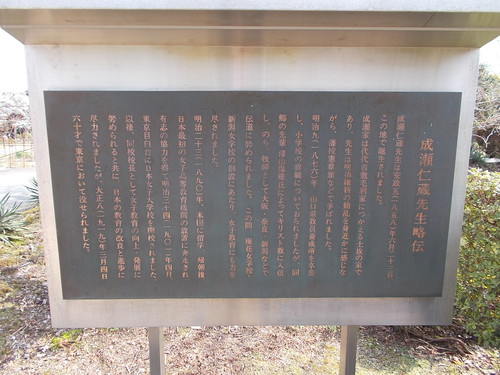 成瀬仁蔵先生略伝
成瀬仁蔵先生は安政五(一八五八)年六月二十三日、
この地で誕生されました。
成瀬家は代代吉敷毛利家につかえる士族の家で
あり、先生は明治維新の動乱を身近かに感じな
がら、藩校憲章館などで学ばれました。
明治九(一八七六)年、山口県教員養成所を卒業
し、小学校の教職についておられましたが、同
郷の先輩、澤山保羅氏によってキリスト教に入信
し、のち、牧師として大阪・奈良・新潟などで
伝道に努められました。この間、梅花女学校・
新潟女学校の創設にあたり、女子教育にも力を
尽されました。
明治二十三(一八九〇)年、米国に留学、帰朝後、
日本最初の女子高等教育機関の設置に奔走され
有志の協力を得て明治三十四(一九〇一)年四月
東京目白台に日本女子大学校を開校されました。
以後、同校校長として女子教育の向上・発展に
努められると共に、日本の教育の改良と進歩に
尽力されましたが、大正八(一九一九)年三月四日
六十才で東京において没せられました。